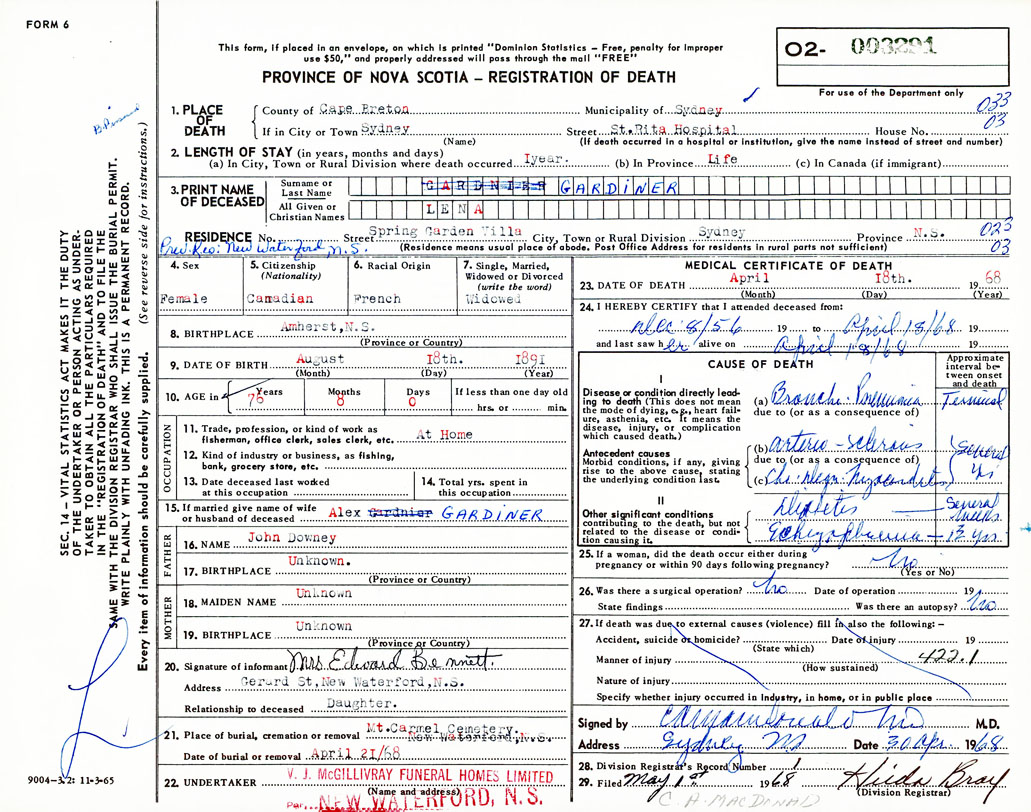 FORM 6
This form, if placed in an envelope, on which is printed "Dominion Statistics – Free, penalty for improper
use $50," and properly addressed will pass through the mail "FREE"
PROVINCE OF NOVA SCOTIA – REGISTRATION OF DEATH
02- 003291
For use of the Department only
033
03
1. PLACE OF DEATH
County of Cape Breton Municipality of Sydney
If in City or Town Sydney Street St.Rita Hospital House No.
(Name) (If death occurred in a hospital or institution, give the name instead of street and number)
2. LENGTH OF STAY (in years, months and days)
(a) In City, Town or Rural Division where death occurred 1year. (b) In Province Life (c) In Canada (if immigrant)
3. PRINT NAME OF DECEASED
Surname or Last Name GARDNIER GARDINER
All Given or Christian Names LENA
RESIDENCE No. Street Spring Garden Villa City, Town or Rural Division Sydney Province N.S. 023
Prev. Res: New Waterford, N.S. (Residence means usual place of abode. Post Office Address for residents in rural parts not sufficient) 03
4. Sex
Female
5. Citizenship (Nationality)
Canadian
6. Racial Origin
French
7. Single, Married, Widowed or Divorced (write the word)
Widowed
8. BIRTHPLACE Amherst,N.S.
(Province or Country)
9. DATE OF BIRTH August 18th. 1891
(Month) (Day) (Year)
10. AGE in Years Months Days If less than one day old
76 8 0 hrs. or min.
OCCUPATION
11. Trade, profession, or kind of work as
fisherman, office clerk, sales clerk, etc. At Home
12. Kind of industry or business, as fishing,
bank, grocery store, etc.
13. Date deceased last worked
at this occupation
14. Total yrs. spent in
this occupation
15. If married give name of wife
or husband of deceased Alex Gardnier GARDINER
FATHER
16. NAME John Downey
17. BIRTHPLACE Unknown.
(Province or Country)
MOTHER
18. MAIDEN NAME Unknown
19. BIRTHPLACE Unknown
(Province or Country)
20. Signature of informant Mrs. Edward Bennett.
Address Gerard St,New Waterford,N.S.
Relationship to deceased Daughter.
21. Place of burial, cremation or removal Mt.Carmel Cemetery.
New Waterford,N.S.
Date of burial or removal April 21/68
22. UNDERTAKER V. J. McGILLIVRAY FUNERAL HOMES LIMITED
(Name and address)
Per NEW WATERFORD, N. S.
MEDICAL CERTIFICATE OF DEATH
23. DATE OF DEATH April 18th. 19 68
(Month) (Day) (Year)
24. I HEREBY CERTIFY that I attended deceased from:
Dec. 8/56 19 to April 18/68 19
and last saw her alive on April 18/68 19
CAUSE OF DEATH
Approximate interval between onset and death
I
Disease or condition directly leading to death (This does not mean the mode of dying, e.g., heart failure, asthenia, etc. It means the disease, injury, or complication which caused death.)
(a) Broncho Pneumonia Terminal
due to (or as a consequence of)
Antecedent causes
Morbid conditions, if any, giving rise to the above cause, stating the underlying condition last.
(b) Arterio-Sclerosis Several
due to (or as a consequence of) Yrs
(c) Chr. Degn. Myocarditis
II
Other significant conditions contributing to the death, but not related to the disease or condition causing it.
Diabetes — Several
Schizophrenia — 12 yrs.
25. If a woman, did the death occur either during
pregnancy or within 90 days following pregnancy? No
(Yes or No)
26. Was there a surgical operation? No Date of operation 19
State findings Was there an autopsy? No
27. If death was due to external causes (violence) fill in also the following: –
Accident, suicide or homicide? Date of injury 19
(State which)
Manner of injury 422.1
(How sustained)
Nature of injury
Specify whether injury occurred in industry, in home, or in public place
Signed by C A Macdonald MD M.D.
Address Sydney NS Date 30 Apr. 1968
28. Division Registrar's Record Number 1
29. Filed May 1st 1968 Hilda Bray
(Division Registrar)
C A MACDONALD
SEC. 14 – VITAL STATISTICS ACT MAKES IT THE DUTY
OF THE UNDERTAKER OR PERSON ACTING AS UNDER-
TAKER TO OBTAIN ALL THE PARTICULARS REQUIRED
IN THE "REGISTRATION OF DEATH" AND TO FILE THE
SAME WITH THE DIVISION REGISTRAR WHO SHALL ISSUE THE BURIAL PERMIT.
WRITE PLAINLY WITH UNFADING INK. THIS IS A PERMANENT RECORD.
Every item of information should be carefully supplied. (See reverse side for instructions.)